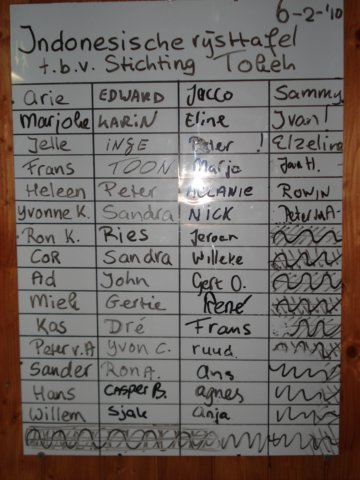 6-2-'10
Indonesische rijsttafel
t.b.v. Stichting Tokeh
Arie EDWARD Jacco Sammy
Marjoke KARIN Eline Ivan!
Jelle INGE Peter ! Elzeline
Frans TOON Marja Jan H.
Heleen Peter MELANIE ROWIN
Yvonne K. Sandra NICK
Ron K. Ries Jeroen
COR Sandra Willeke
Ad John Gert O.
Miek Gertie René
Kas Dré Frans
Peter v.A Yvon C. ruud.
Sander Ron A. Ans
Hans CASPER B. agnes
Willem Sjak anja